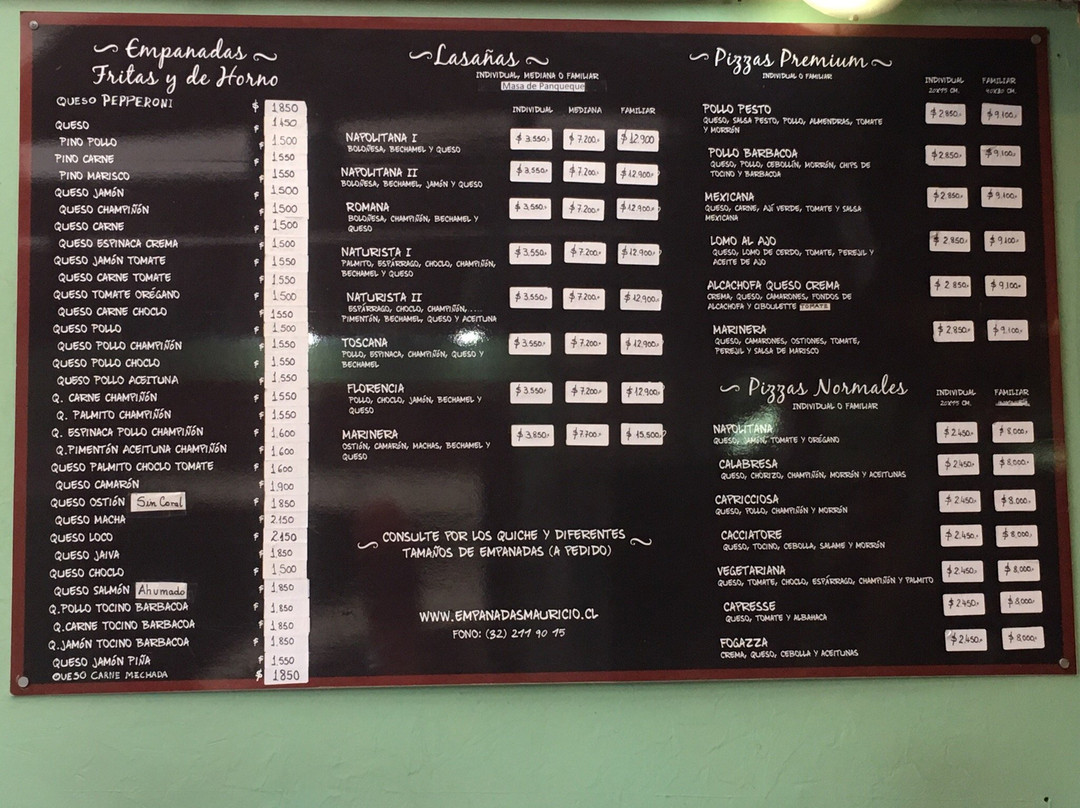 Empanadas
Fritas y de Horno
QUESO PEPPERONI $ 1850
QUESO $ 1450
PINO POLLO $ 1.500
PINO CARNE $ 1550
PINO MARISCO $ 1550
QUESO JAMÓN $ 1500
QUESO CHAMPIÑÓN $ 1500
QUESO CARNE $ 1500
QUESO ESPINACA CREMA $ 1500
QUESO JAMÓN TOMATE $ 1.550
QUESO CARNE TOMATE $ 1.550
QUESO TOMATE ORÉGANO $ 1500
QUESO CARNE CHOCLO $ 1550
QUESO POLLO $ 1.500
QUESO POLLO CHAMPIÑÓN $ 1.550
QUESO POLLO CHOCLO $ 1.550
QUESO POLLO ACEITUNA $ 1.550
Q. CARNE CHAMPIÑÓN $ 1.550
Q. PALMITO CHAMPIÑÓN $ 1.550
Q. ESPINACA POLLO CHAMPIÑÓN $ 1.600
Q. PIMENTÓN ACEITUNA CHAMPIÑÓN $ 1.600
QUESO PALMITO CHOCLO TOMATE $ 1600
QUESO CAMARÓN $ 1.900
QUESO OSTIÓN Sin Coral $ 1850
QUESO MACHA $ 2.150
QUESO LOCO $ 2.150
QUESO JAIVA $ 1.850
QUESO CHOCLO $ 1500
QUESO SALMÓN Ahumado $ 1.850
Q. POLLO TOCINO BARBACOA $ 1.850
Q. CARNE TOCINO BARBACOA $ 1.850
Q. JAMÓN TOCINO BARBACOA $ 1.850
QUESO JAMÓN PIÑA $ 1.550
QUESO CARNE MECHADA $ 1850
Lasañas
INDIVIDUAL, MEDIANA O FAMILIAR
Masa de Panqueque
INDIVIDUAL MEDIANA FAMILIAR
NAPOLITANA I $3.550.- $7.200.- $12.900
BOLOÑESA, BECHAMEL Y QUESO
NAPOLITANA II $3.550.- $7.200.- $12.900.-
BOLOÑESA, BECHAMEL, JAMÓN Y QUESO
ROMANA $3.550.- $7.200.- $12.900.-
BOLOÑESA, CHAMPIÑÓN, BECHAMEL Y
QUESO
NATURISTA I $3.550.- $7.200.- $12.900.-
PALMITO, ESPÁRRAGO, CHOCLO, CHAMPIÑÓN,
BECHAMEL Y QUESO
NATURISTA II $3.550.- $7.200.- $12.900.-
ESPÁRRAGO, CHOCLO, CHAMPIÑÓN,....
PIMENTÓN, BECHAMEL, QUESO Y ACEITUNA
TOSCANA $3.550.- $7.200.- $12.900.-
POLLO, ESPINACA, CHAMPIÑÓN, QUESO Y
BECHAMEL
FLORENCIA $3.550.- $7.200.- $12.900.-
POLLO, CHOCLO, JAMÓN, BECHAMEL Y
QUESO
MARINERA $3.850.- $7.700.- $15.500.-
OSTIÓN, CAMARÓN, MACHAS, BECHAMEL Y
QUESO
CONSULTE POR LOS QUICHE Y DIFERENTES
TAMAÑOS DE EMPANADAS (A PEDIDO)
WWW.EMPANADASMAURICIO.CL
FONO: (32) 211 90 15
Pizzas Premium
INDIVIDUAL O FAMILIAR
INDIVIDUAL FAMILIAR
20X15 CM. 40X30 CM.
POLLO PESTO $2.850.- $9.100.-
QUESO, SALSA PESTO, POLLO, ALMENDRAS, TOMATE
Y MORRÓN
POLLO BARBACOA $2.850.- $9.100.-
QUESO, POLLO, CEBOLLÍN, MORRÓN, CHIPS DE
TOCINO Y BARBACOA
MEXICANA $2.850.- $9.100.-
QUESO, CARNE, AJÍ VERDE, TOMATE Y SALSA
MEXICANA
LOMO AL AJO $2.850.- $9.100.-
QUESO, LOMO DE CERDO, TOMATE, PEREJIL Y
ACEITE DE AJO
ALCACHOFA QUESO CREMA $2.850.- $9.100.-
CREMA, QUESO, CAMARONES, FONDOS DE
ALCACHOFA Y CIBOULETTE TOMATE
MARINERA $2.850.- $9.100.-
QUESO, CAMARONES, OSTIONES, TOMATE,
PEREJIL Y SALSA DE MARISCO
Pizzas Normales
INDIVIDUAL O FAMILIAR
INDIVIDUAL FAMILIAR
20X15 CM.
NAPOLITANA $2.450.- $8.000.-
QUESO, JAMÓN, TOMATE Y ORÉGANO
CALABRESA $2.450.- $8.000.-
QUESO, CHORIZO, CHAMPIÑÓN, MORRÓN Y ACEITUNAS
CAPRICCIOSA $2.450.- $8.000.-
QUESO, POLLO, CHAMPIÑÓN Y MORRÓN
CACCIATORE $2.450.- $8.000.-
QUESO, TOCINO, CEBOLLA, SALAME Y MORRÓN
VEGETARIANA $2.450.- $8.000.-
QUESO, TOMATE, CHOCLO, ESPÁRRAGO, CHAMPIÑÓN Y PALMITO
CAPRESSE $2.450.- $8.000.-
QUESO, TOMATE Y ALBAHACA
FOGAZZA $2.450.- $8.000.-
CREMA, QUESO, CEBOLLA Y ACEITUNAS